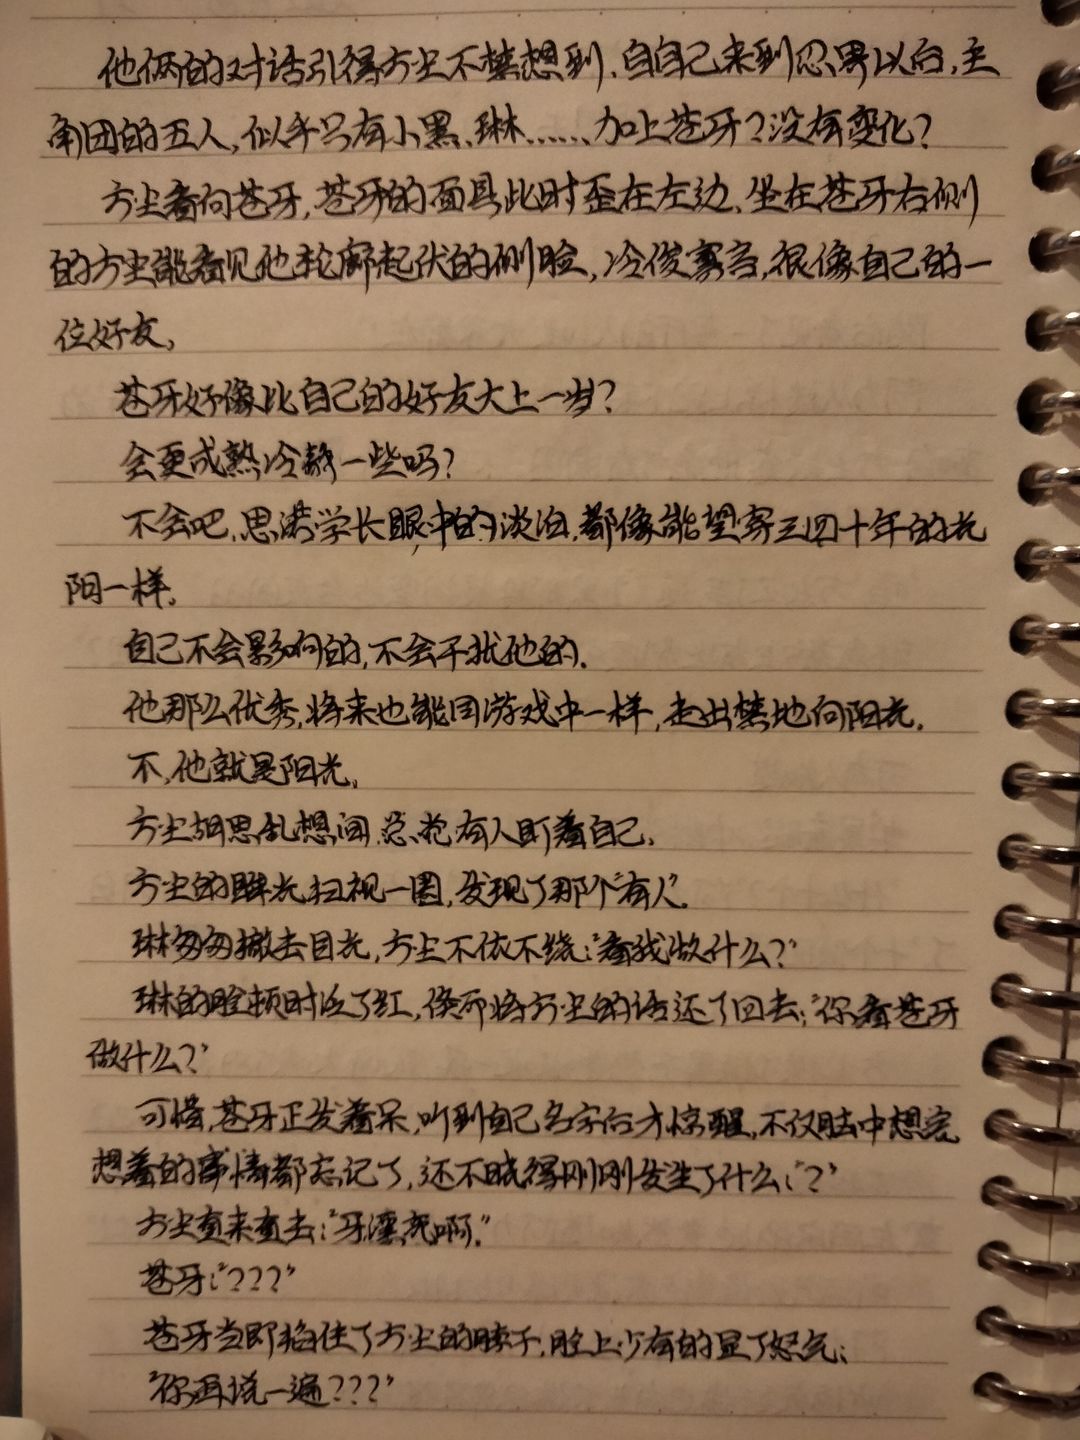 他俩的对话引得方尘不禁想到,自自己来到忍界以后,主
角团的五人,似乎只有小黑、琳……加上苍牙?没有变化?
方尘看向苍牙,苍牙的面具此时歪在左边,坐在苍牙右侧
的方尘能看见他轮廓起伏的侧脸,冷俊寡言,很像自己的一
位好友,
苍牙好像比自己的好友大上一岁?
会更成熟冷静一些吗?
不会吧,思洪学长眼中的淡泊,都像能望穿三四十年的光
阳一样。
自己不会影响的,不会干扰他的.
他那么优秀,将来也能同游戏中一样,走出禁地向阳光.
不,他就是阳光,
方尘胡思乱想间,总觉有人盯着自己,
方尘的眸光扫视一圈,发现了那个“有人”.
琳匆匆撤去目光,方尘不依不绕:“看我做什么?”
琳的脸顿时泛了红,倏而将方尘的话还了回去:“你看苍牙
做什么?”
可惜,苍牙正发着呆,听到自己名字后才惊醒,不仅脑中想完
想着的事情都忘记了,还不晓得刚刚发生了什么:“?”
方尘直来直去:“牙漂亮啊.”
苍牙:“???”
苍牙当即掐住了方尘的脖子,脸上少有的显了怒气:
“你再说一遍???”